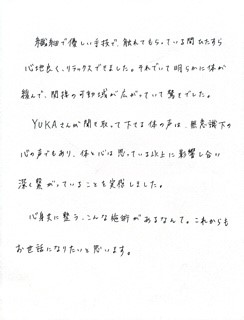 繊細で優しい手技で、触れてもらっている間ひたすら
心地良く、リラックスできました。それでいて明らかに体が
緩んで、関節の可動域が広がっていて驚きでした。
YUKAさんが聞き取って下さる体の声は、無意識下の
心の声でもあり、体と心は思っている以上に影響し合い
深く繋がっていることを実感しました。
心身共に整う、こんな施術があるなんて。これからも
お世話になりたいと思います。